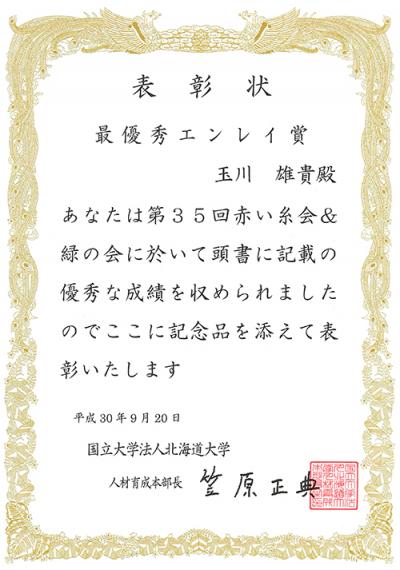 表彰状
最優秀エンレイ賞
玉川 雄貴殿
あなたは第３５回赤い糸会＆
緑の会に於いて頭書に記載の
優秀な成績を収められました
のでここに記念品を添えて表
彰いたします
平成30年9月20日
国立大学法人北海道大学
人材育成本部長 笠原正典